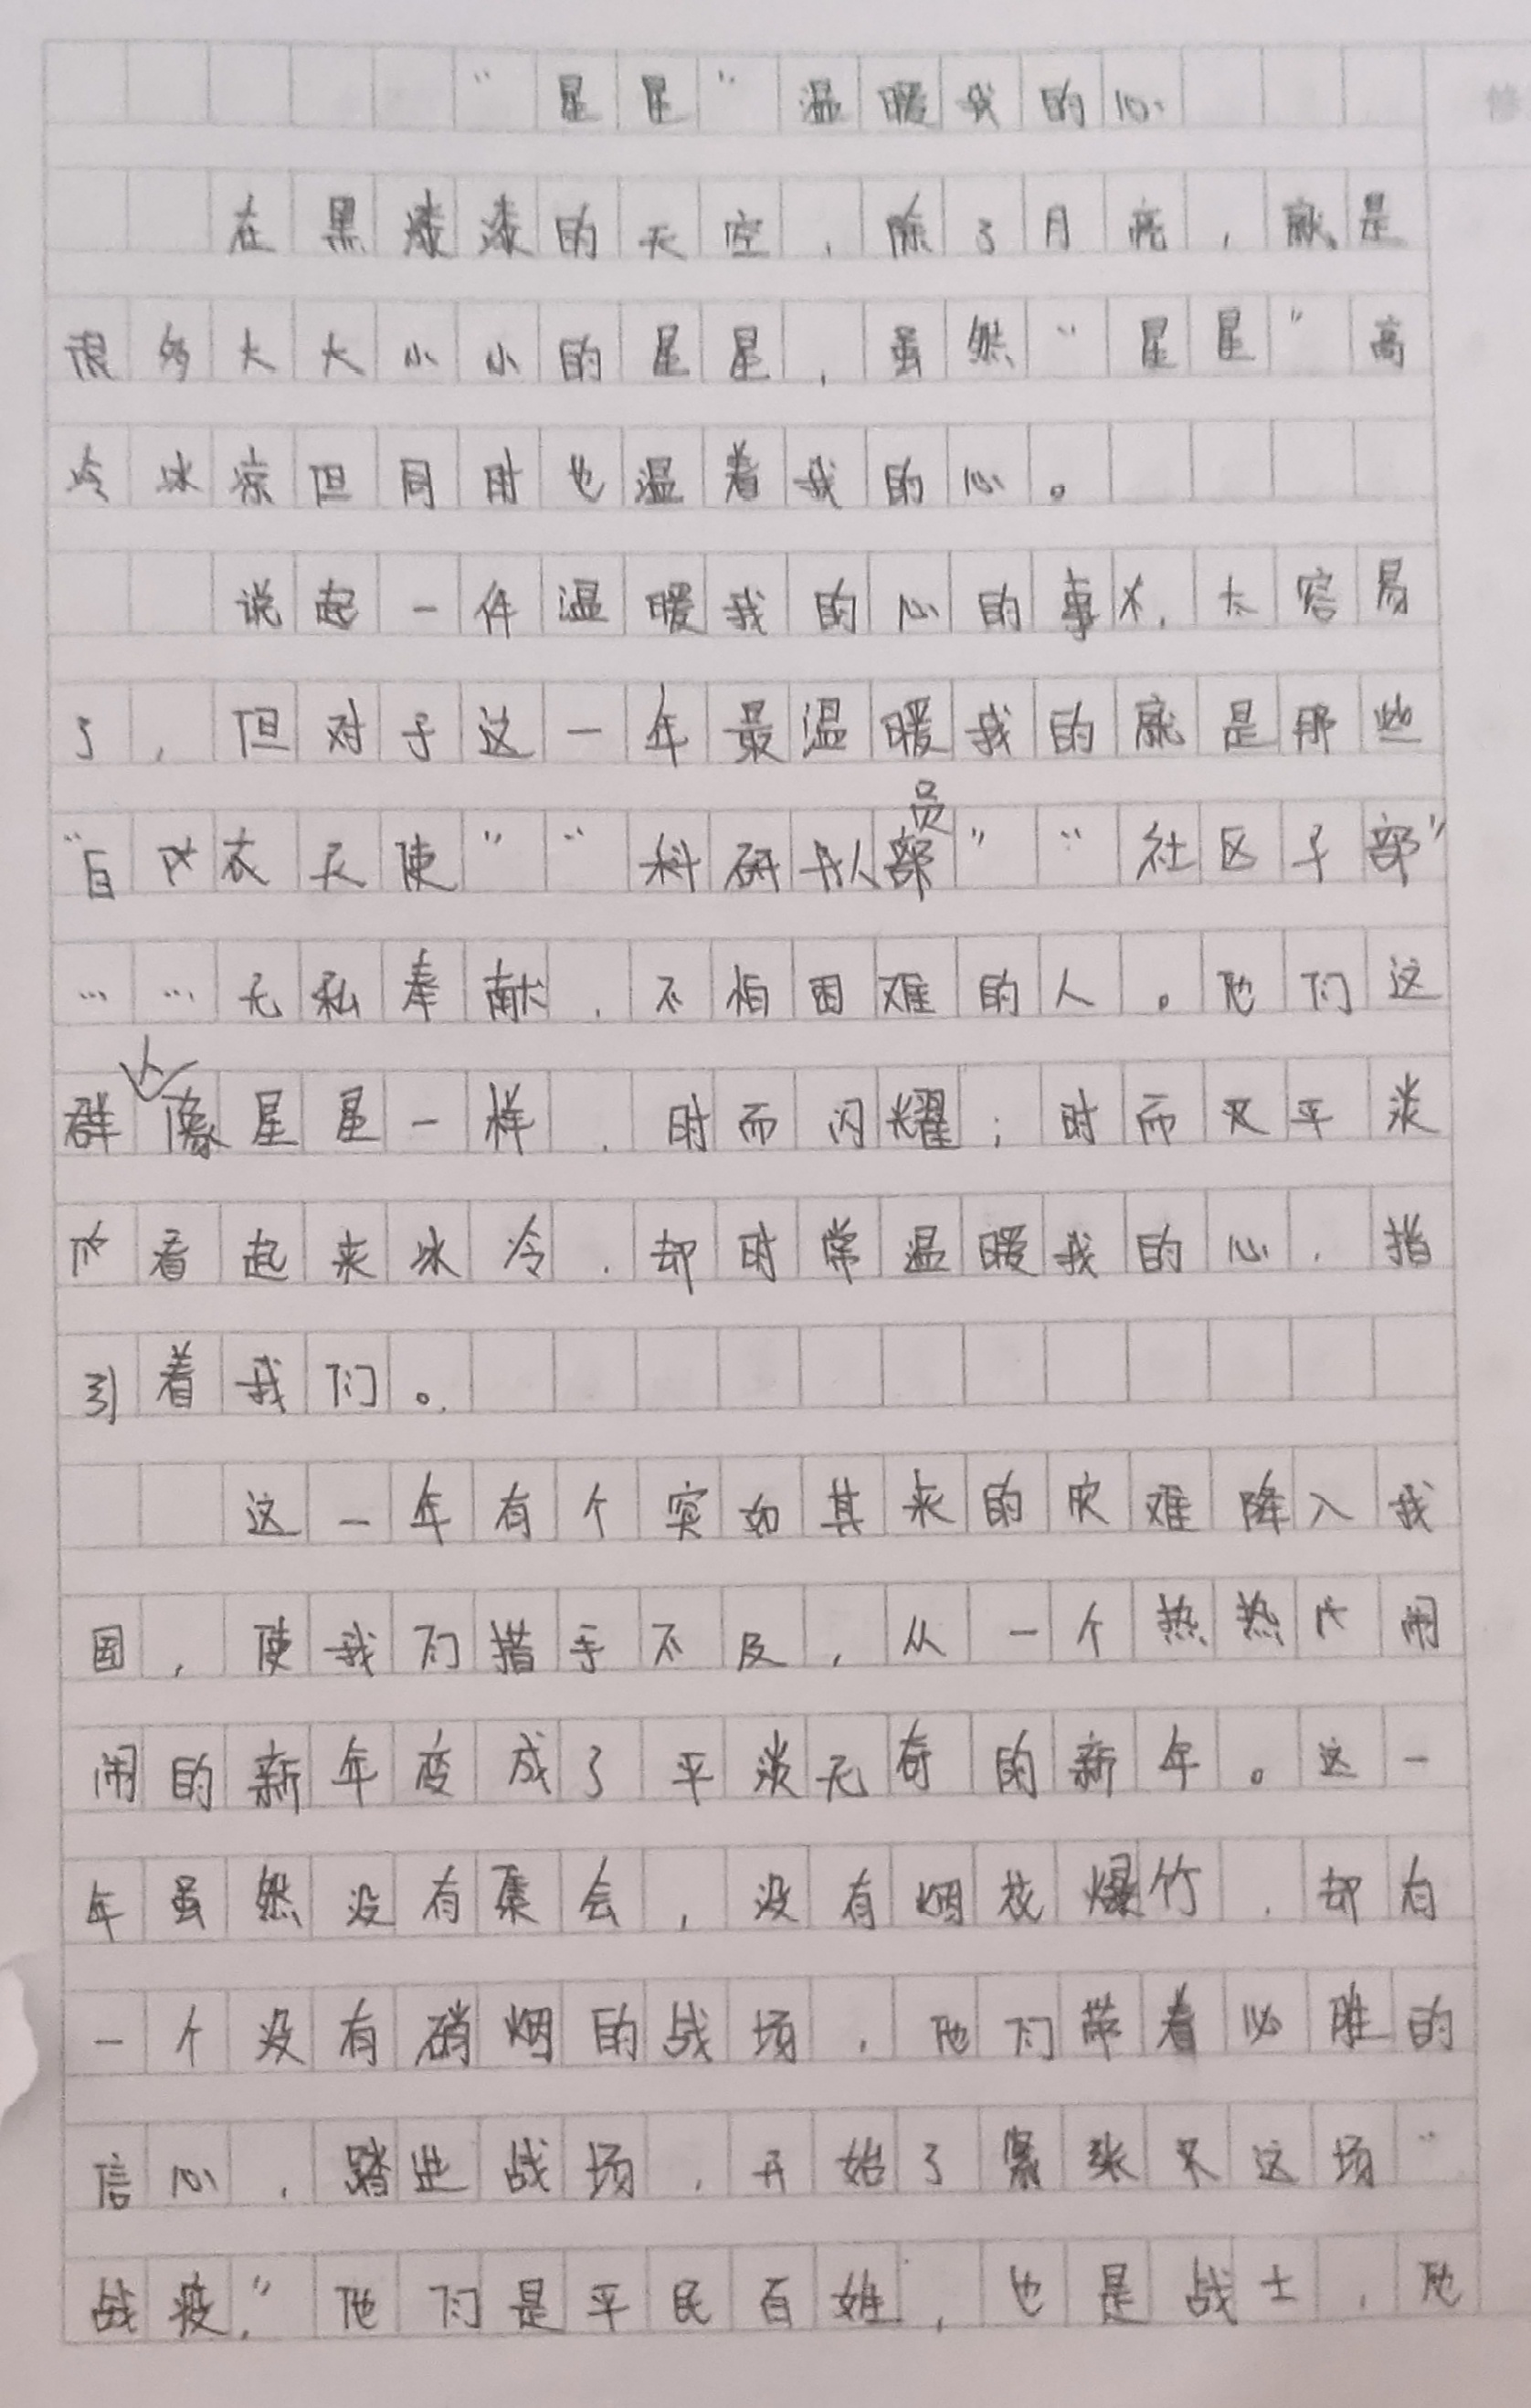 “星星”温暖我的心
在黑漆漆的天空,除了月亮,就是
很多大大小小的星星,虽然“星星”高
冷冰凉但同时也温着我的心。
说起一件温暖我的心的事,太容易
了,但对于这一年最温暖我的就是那些
“白衣天使”“科研队员”“社区干部”
……无私奉献,不怕困难的人。他们这
群人像星星一样,时而闪耀;时而又平淡
看起来冰冷,却时常温暖我的心,指
引着我们。
这一年有个突如其来的灾难降入我
国,使我们措手不及,从一个热热闹
闹的新年变成了平淡无奇的新年。这一
年虽然没有集会,没有烟花爆竹,却有
一个没有硝烟的战场,他们带着必胜的
信心,踏进战场,开始了紧张的这场“
战疫”他们是平民百姓,也是战士,他